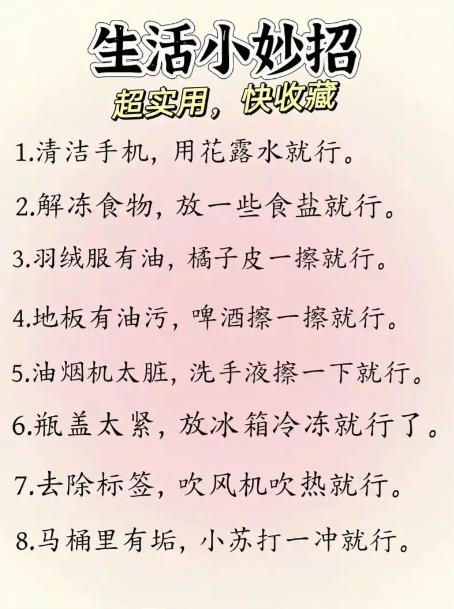 生活小妙招
超实用，快收藏
1.清洁手机，用花露水就行。
2.解冻食物，放一些食盐就行。
3.羽绒服有油，橘子皮一擦就行。
4.地板有油污，啤酒擦一擦就行。
5.油烟机太脏，洗手液擦一下就行。
6.瓶盖太紧，放冰箱冷冻就行了。
7.去除标签，吹风机吹热就行。
8.马桶里有垢，小苏打一冲就行。